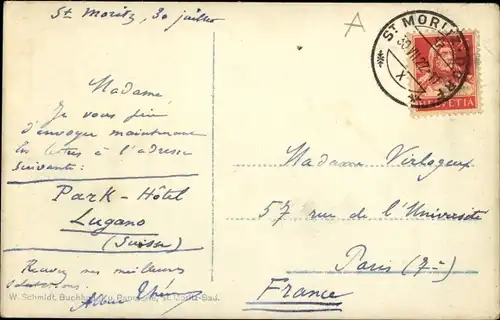 St Moritz, 30 juillet
Madame
Je vous prie
d'envoyer maintenant
les lettres à l'adresse
suivante:
Park-Hôtel
Lugano
(Suisse)
Recevez mes meilleures
salutations.
Albert
W. Schmidt, Buchhdlg. u. Papeterie, St. Moritz-Bad.
A
ST MORITZ DORF
30 VII 22
X
HELVETIA
Madame Verlogeux
57 rue de l'Université
Paris (7e)
France